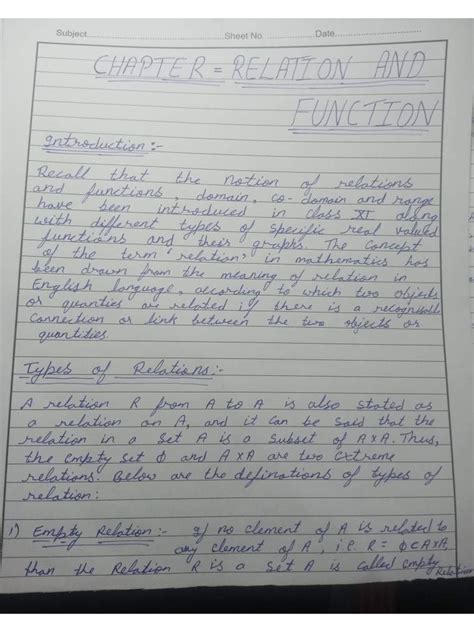 Subject............ Sheet No. ............ Date............
CHAPTER = RELATION AND
FUNCTION
Introduction :-
Recall that the notion of relations
and functions, domain, co-domain and range
have been introduced in class XI along
with different types of specific real valued
functions and their graphs. The Concept
of the term 'relation' in mathematics has
been drawn from the meaning of relation in
English language, according to which two objects
or quanties are related if there is a recognisable
Connection or link between the two objects or
quantities.
Types of Relations:-
A relation R from A to A is also stated as
a relation on A, and it can be said that the
relation in a set A is a subset of AXA. Thus,
the empty set φ and AXA are two extreme
relations. Below are the definations of types of
relation:
1) Empty Relation:- If no element of A is related to
any element of A, i.e. R = φ ⊂ AXA,
than the Relation R is a set A is called empty
Relation